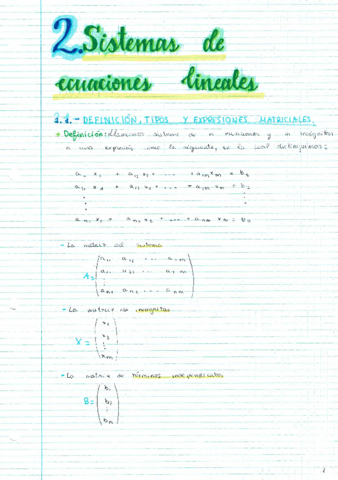 2. Sistemas de
ecuaciones lineales
2.1.- DEFINICIÓN, TIPOS Y EXPRESIONES MATRICIALES
Definición: Llamamos sistema de n ecuaciones y m incógnitas
a una expresión como la siguiente, en la cual distinguimos:
a₁₁ x₁ + a₁₂ x₂ + ... + a₁ₘ xₘ = b₁
a₂₁ x₁ + a₂₂ x₂ + ... + a₂ₘ xₘ = b₂
⋮ ⋮ ⋮
aₙ₁ x₁ + aₙ₂ x₂ + ... + aₙₘ xₘ = bₙ
- La matriz del sistema
a₁₁ a₁₂ ... a₁ₘ
a₂₁ a₂₂ ... a₂ₘ
A = ⋮
aₙ₁ aₙ₂ ... aₙₘ
- La matriz de incógnitas
x₁
x₂
X = ⋮
xₘ
- La matriz de términos independientes
b₁
B = b₂
⋮
bₙ